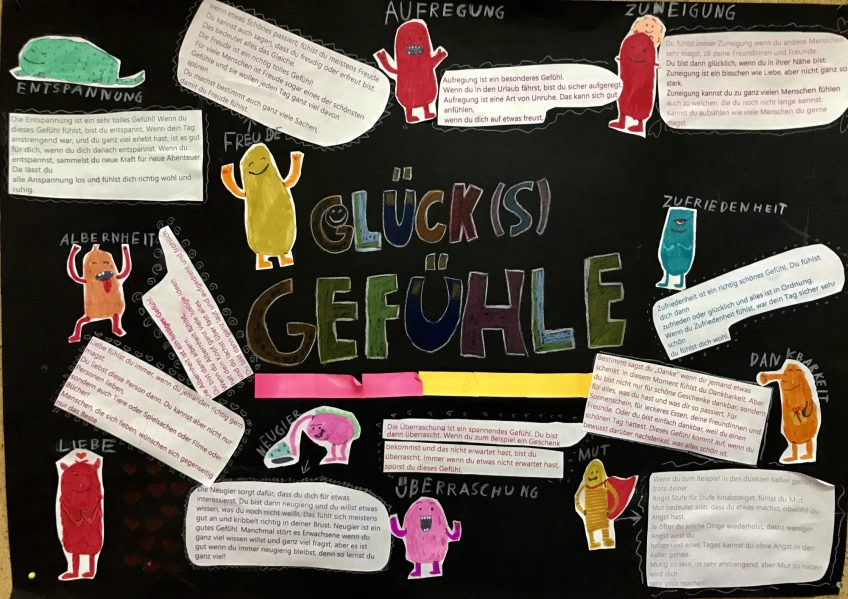 AUFREGUNG
ZUNEIGUNG
ENTSPANNUNG
Die Entspannung ist ein sehr tolles Gefühl! Wenn du
dieses Gefühl fühlst, bist du entspannt. Wenn dein Tag
anstrengend war, und du ganz viel erlebt hast, ist es gut
für dich, wenn du dich danach entspannst. Wenn du
entspannst, sammelst du neue Kraft für neue Abenteuer.
Da lässt du
alle Anspannung los und fühlst dich richtig wohl und
ruhig.
wenn etwas Schönes passiert, fühlst du meistens Freude
Du kannst auch sagen, dass du freudig oder erfreut bist.
Das bedeutet alles das Gleiche.
Die Freude ist ein richtig tolles Gefühl!
Für viele Menschen ist Freude sogar eines der schönsten
Gefühle und sie wollen jeden Tag ganz viel davon
spüren.
Du machst bestimmt auch ganz viele Sachen,
damit du Freude fühlst.
FREUDE
Aufregung ist ein besonderes Gefühl.
Wenn du in den Urlaub fährst, bist du sicher aufgeregt.
Aufregung ist eine Art von Unruhe. Das kann sich gut
anfühlen,
wenn du dich auf etwas freust.
Du fühlst immer Zuneigung wenn du andere Menschen
sehr magst, zB deine Freundinnen und Freunde.
Du bist dann glücklich, wenn du in ihrer Nähe bist.
Zuneigung ist ein bisschen wie Liebe, aber nicht ganz so
stark.
Zuneigung kannst du zu ganz vielen Menschen fühlen
auch zu welchen, die du noch nicht lange kennst.
Kannst du aufzählen wie viele Menschen du gerne
magst
GLÜCK(S)
GEFÜHLE
ALBERNHEIT
ZUFRIEDENHEIT
Zufriedenheit ist ein richtig schönes Gefühl. Du fühlst
dich dann
zufrieden oder glücklich und alles ist in Ordnung.
Wenn du Zufriedenheit fühlst, war dein Tag sicher sehr
schön
du fühlst dich wohl.
Liebe fühlst du immer wenn du jemanden richtig gern
magst.
Du liebst diese Person dann. Du kannst aber nicht nur
Personen lieben,
sondern auch Tiere oder Spielsachen oder Filme oder
Bücher!
Menschen, die sich lieben, wünschen sich gegenseitig
nur das Beste
LIEBE
NEUGIER
Die Neugier sorgt dafür, dass du dich für etwas
interessierst. Du bist dann neugierig und du willst etwas
wissen, was du noch nicht weißt. Das fühlt sich meistens
gut an und kribbelt richtig in deiner Brust. Neugier ist ein
gutes Gefühl. Manchmal stört es Erwachsene wenn du
ganz viel wissen willst und ganz viel fragst, aber es ist
gut wenn du immer neugierig bleibst, denn so lernst du
ganz viel!
Die Überraschung ist ein spannendes Gefühl. Du bist
dann überrascht. Wenn du zum Beispiel ein Geschenk
bekommst und das nicht erwartet hast, bist du
überrascht. Immer wenn du etwas nicht erwartet hast,
spürst du dieses Gefühl.
ÜBERRASCHUNG
DANKBARKEIT
Bestimmt sagst du „Danke" wenn dir jemand etwas
schenkt. In diesem Moment fühlst du Dankbarkeit. Aber
du bist nicht nur für schöne Geschenke dankbar, sondern
für alles, was du hast und was dir so passiert. Für
Sonnenschein, für leckeres Essen, deine Freundinnen und
Freunde. Oder du bist einfach dankbar, weil du einen
schönen Tag hattest. Dieses Gefühl kommt auf, wenn du
bewusst darüber nachdenkst, was alles schön ist.
MUT
Wenn du zum Beispiel in den dunklen Keller gehst und
trotz deiner
Angst Stufe für Stufe hinabsteigst, fühlst du Mut.
Mut bedeutet also, dass du etwas machst, obwohl du
Angst hast.
Je öfter du solche Dinge wiederholst, desto weniger
Angst wirst du
haben und eines Tages kannst du ohne Angst in den
Keller gehen.
Mutig zu sein, ist sehr anstrengend, aber Mut zu haben
wird dich
sehr stolz machen!